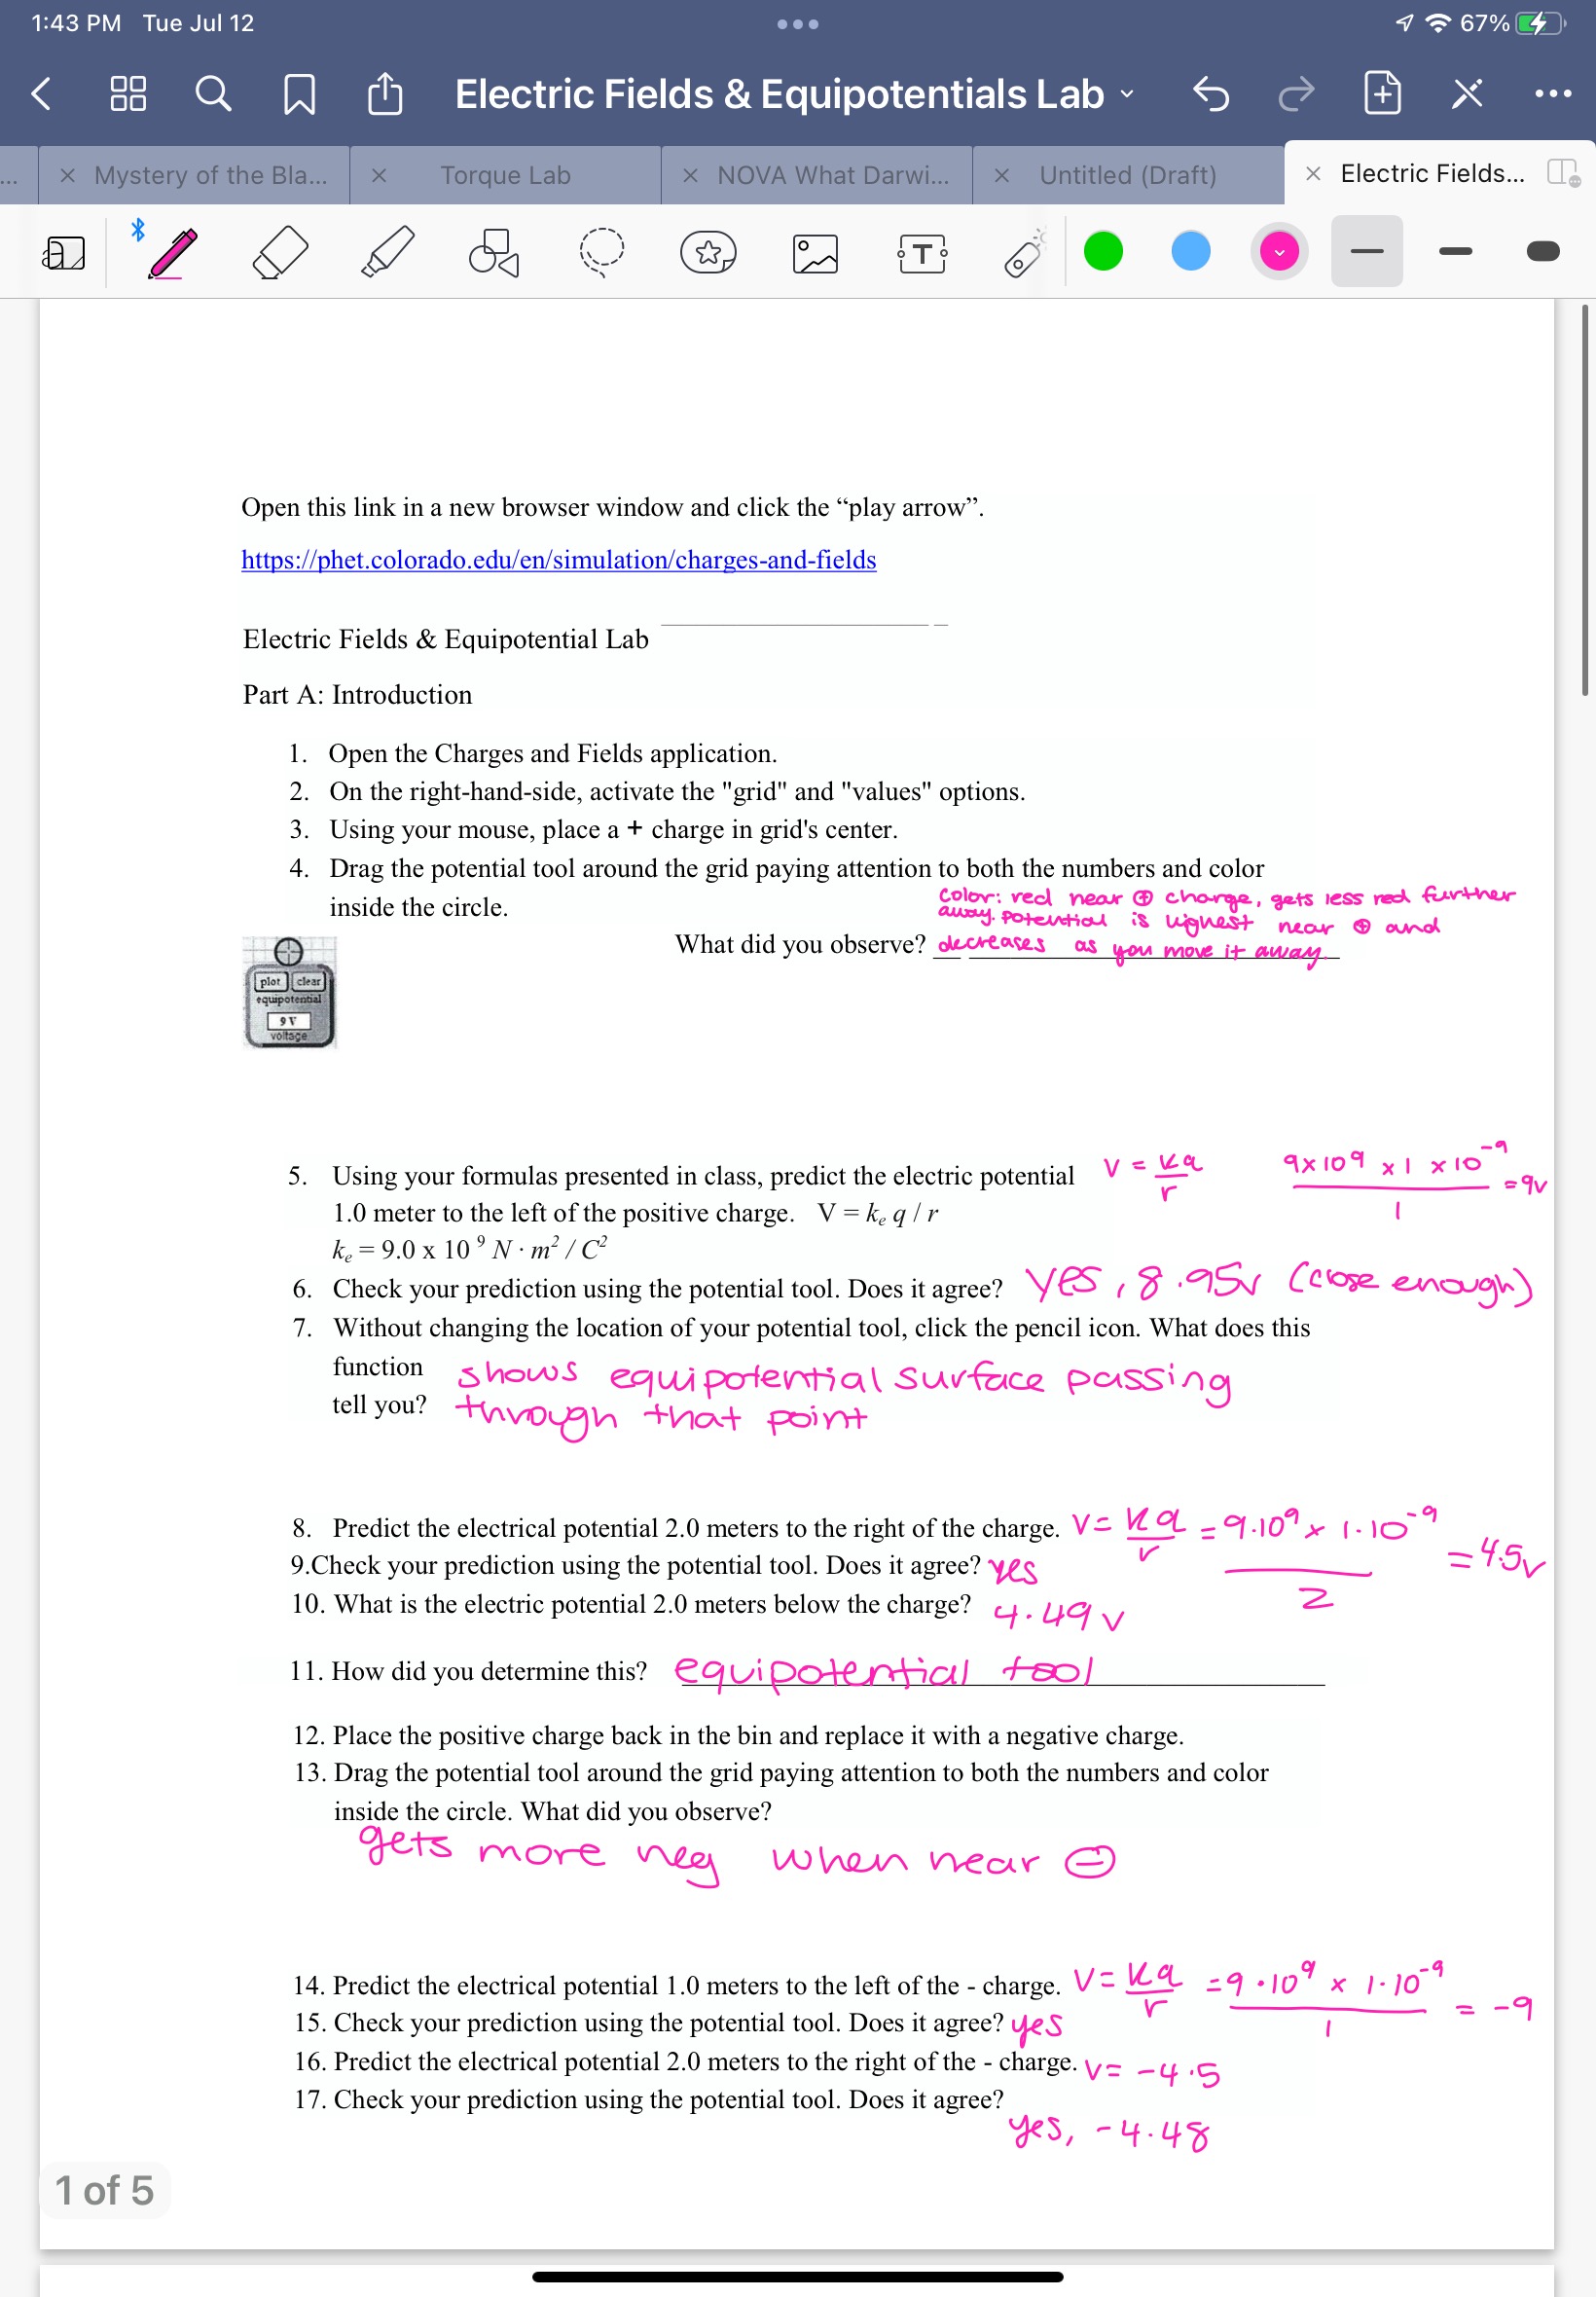 1:43 PM Tue Jul 12
67%
Electric Fields & Equipotentials Lab
...
Mystery of the Bla...
Torque Lab
NOVA What Darwi...
Untitled (Draft)
Electric Fields...
Open this link in a new browser window and click the “play arrow”.
https://phet.colorado.edu/en/simulation/charges-and-fields
Electric Fields & Equipotential Lab
Part A: Introduction
1. Open the Charges and Fields application.
2. On the right-hand-side, activate the "grid" and "values" options.
3. Using your mouse, place a + charge in grid's center.
4. Drag the potential tool around the grid paying attention to both the numbers and color
inside the circle.
color: red near ⊕ charge, gets less red further
away. Potential is highest near ⊕ and
What did you observe? decreases as you move it away.
plot clear
equipotential
9 V
voltage
5. Using your formulas presented in class, predict the electric potential V = kq/r 9x10⁹ x 1 x10⁻⁹/1 = 9v
1.0 meter to the left of the positive charge. V = kₑ q / r
kₑ = 9.0 x 10 ⁹ N · m² / C²
6. Check your prediction using the potential tool. Does it agree? yes, 8.95v (close enough)
7. Without changing the location of your potential tool, click the pencil icon. What does this
function shows equipotential surface passing
tell you? through that point
8. Predict the electrical potential 2.0 meters to the right of the charge. V= kq/r = 9·10⁹ x 1·10⁻⁹/2 = 4.5v
9.Check your prediction using the potential tool. Does it agree? yes
10. What is the electric potential 2.0 meters below the charge? 4.49v
11. How did you determine this? equipotential tool
12. Place the positive charge back in the bin and replace it with a negative charge.
13. Drag the potential tool around the grid paying attention to both the numbers and color
inside the circle. What did you observe?
gets more neg when near ⊖
14. Predict the electrical potential 1.0 meters to the left of the - charge. V= kq/r =9·10⁹ x 1·10⁻⁹/1 = -9
15. Check your prediction using the potential tool. Does it agree? yes
16. Predict the electrical potential 2.0 meters to the right of the - charge. V= -4.5
17. Check your prediction using the potential tool. Does it agree?
yes, -4.48
1 of 5